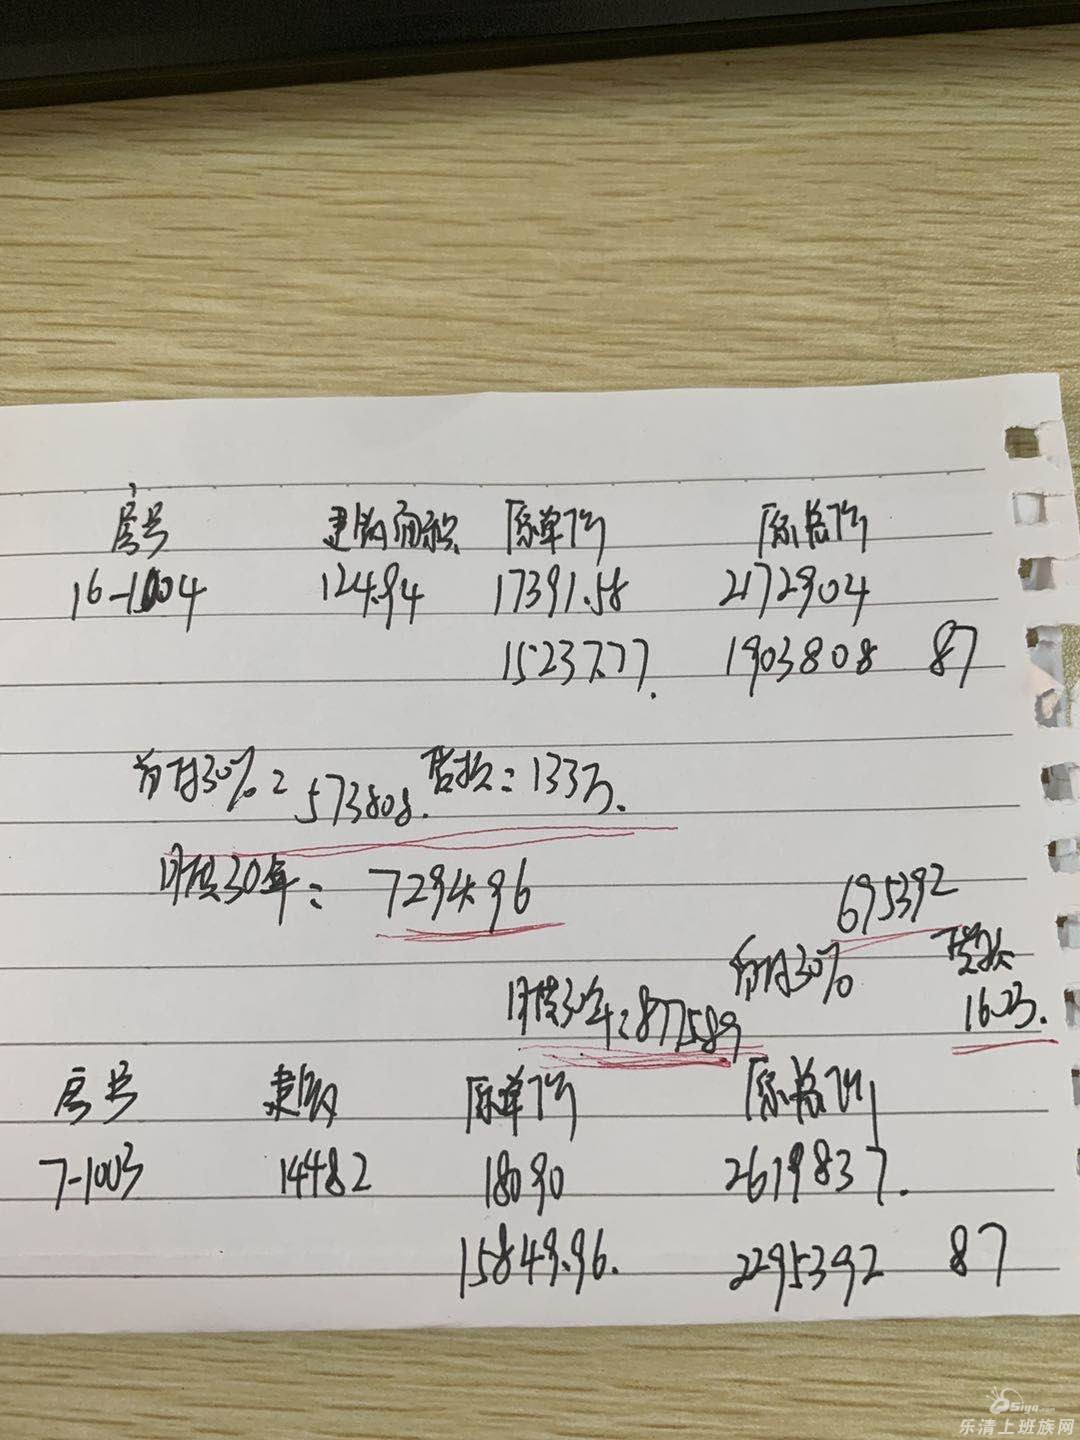 房号 建筑面积 原单价 原总价
16-1004 124.94 17391.58 2172904
15237.77. 1903808 87
首付30%= 573808. 贷款=133万.
月供30年= 7294.96
695392
首付30% 贷款
月供30年=8775.89 160万.
房号 建筑 原单价 原总价
7-1003 144.82 18090 2619837.
15849.96. 2295392 87
乐清上班族网